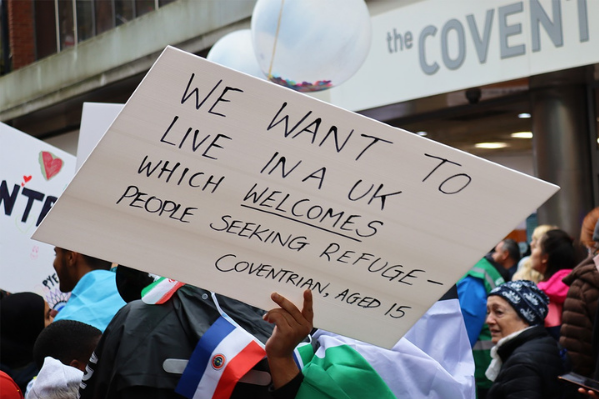 the COVENT
WE WANT TO
LIVE IN A UK
WHICH WELCOMES
PEOPLE SEEKING REFUGE –
COVENTRIAN, AGED 15